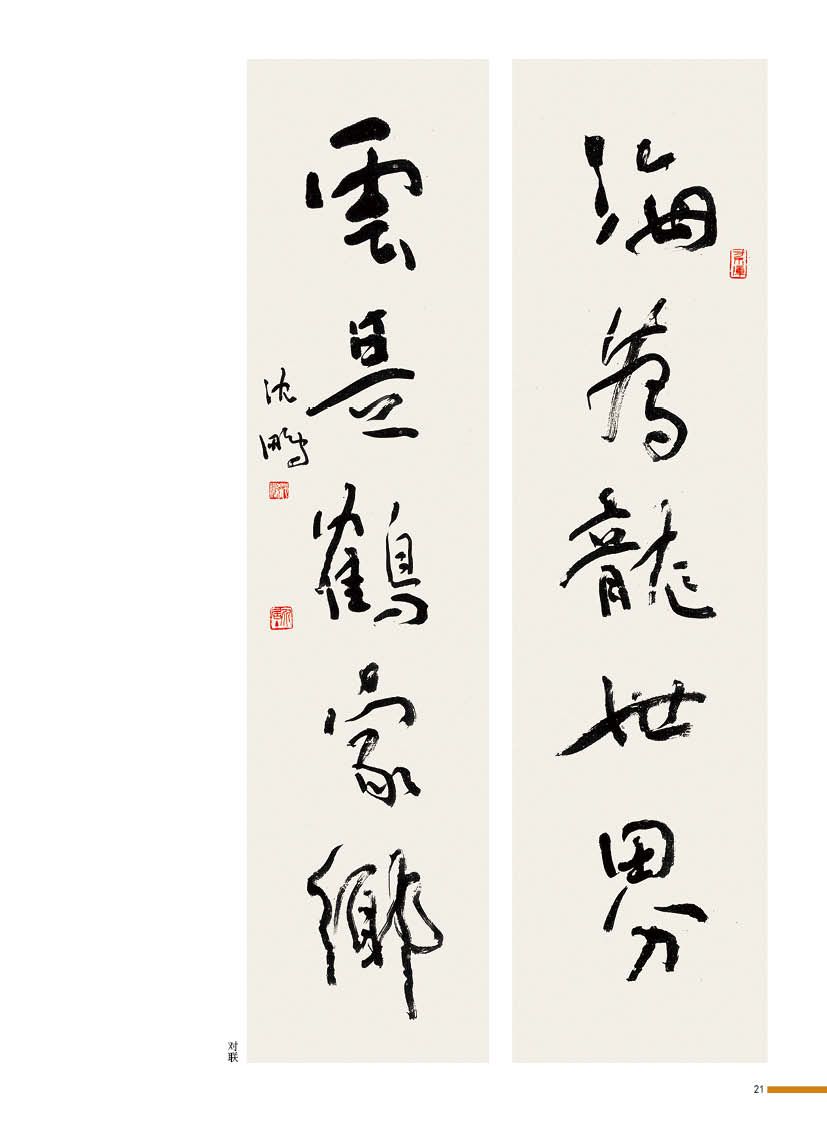 海為龍世界
雲是鶴家鄉
沈鵬
对联
21